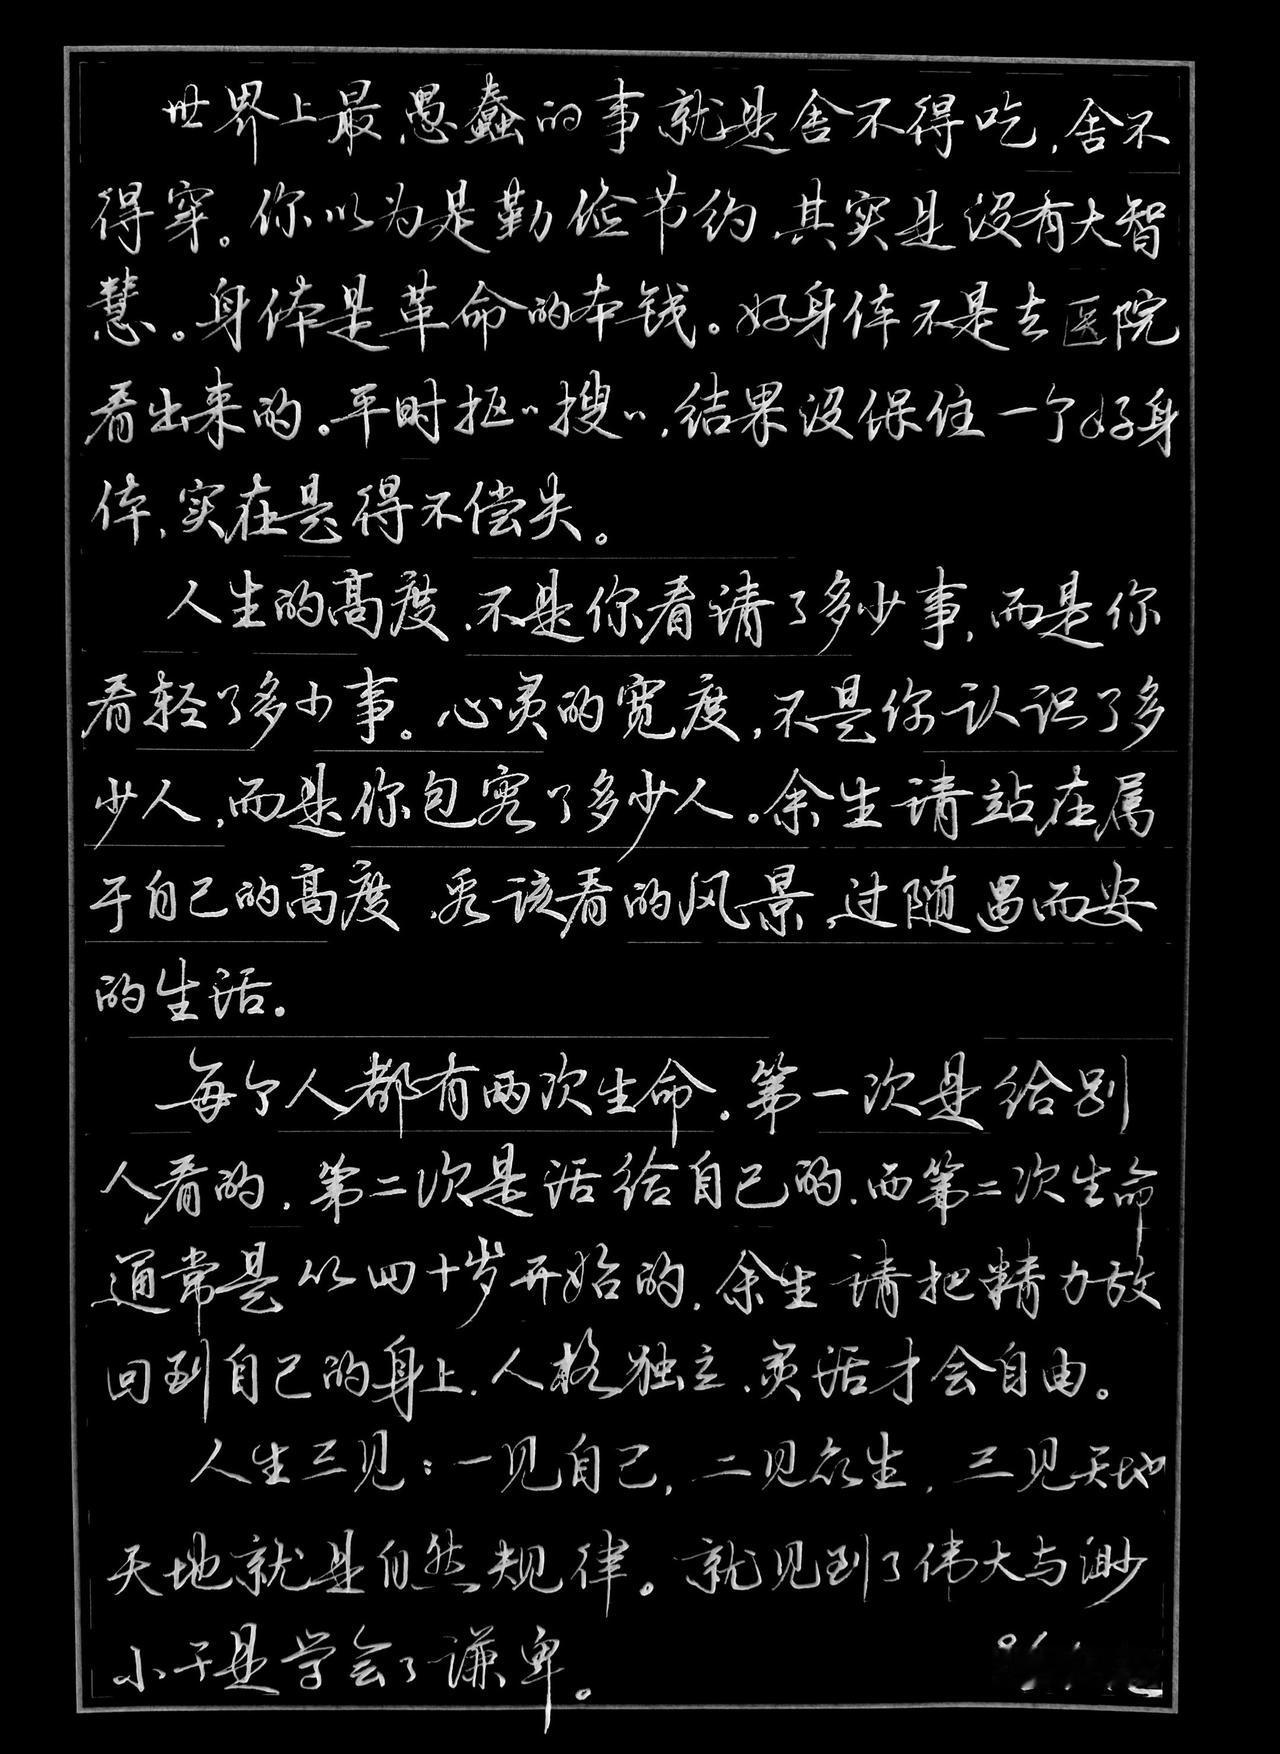 世界上最愚蠢的事就是舍不得吃，舍不
得穿。你以为是勤俭节约，其实是没有大智
慧。身体是革命的本钱。好身体不是去医院
看出来的。平时抠“搜”，结果没保住一个好身
体，实在是得不偿失。
人生的高度，不是你看清了多少事，而是你
看轻了多少事。心灵的宽度，不是你认识了多
少人，而是你包容了多少人。余生请站在属
于自己的高度，看该看的风景，过随遇而安
的生活。
每个人都有两次生命。第一次是给别
人看的，第二次是活给自己的，而第二次生命
通常是从四十岁开始的，余生请把精力放
回到自己的身上，人格独立，灵活才会自由。
人生三见：一见自己，二见众生，三见天地
天地就是自然规律。就见到了伟大与渺
小于是学会了谦卑。